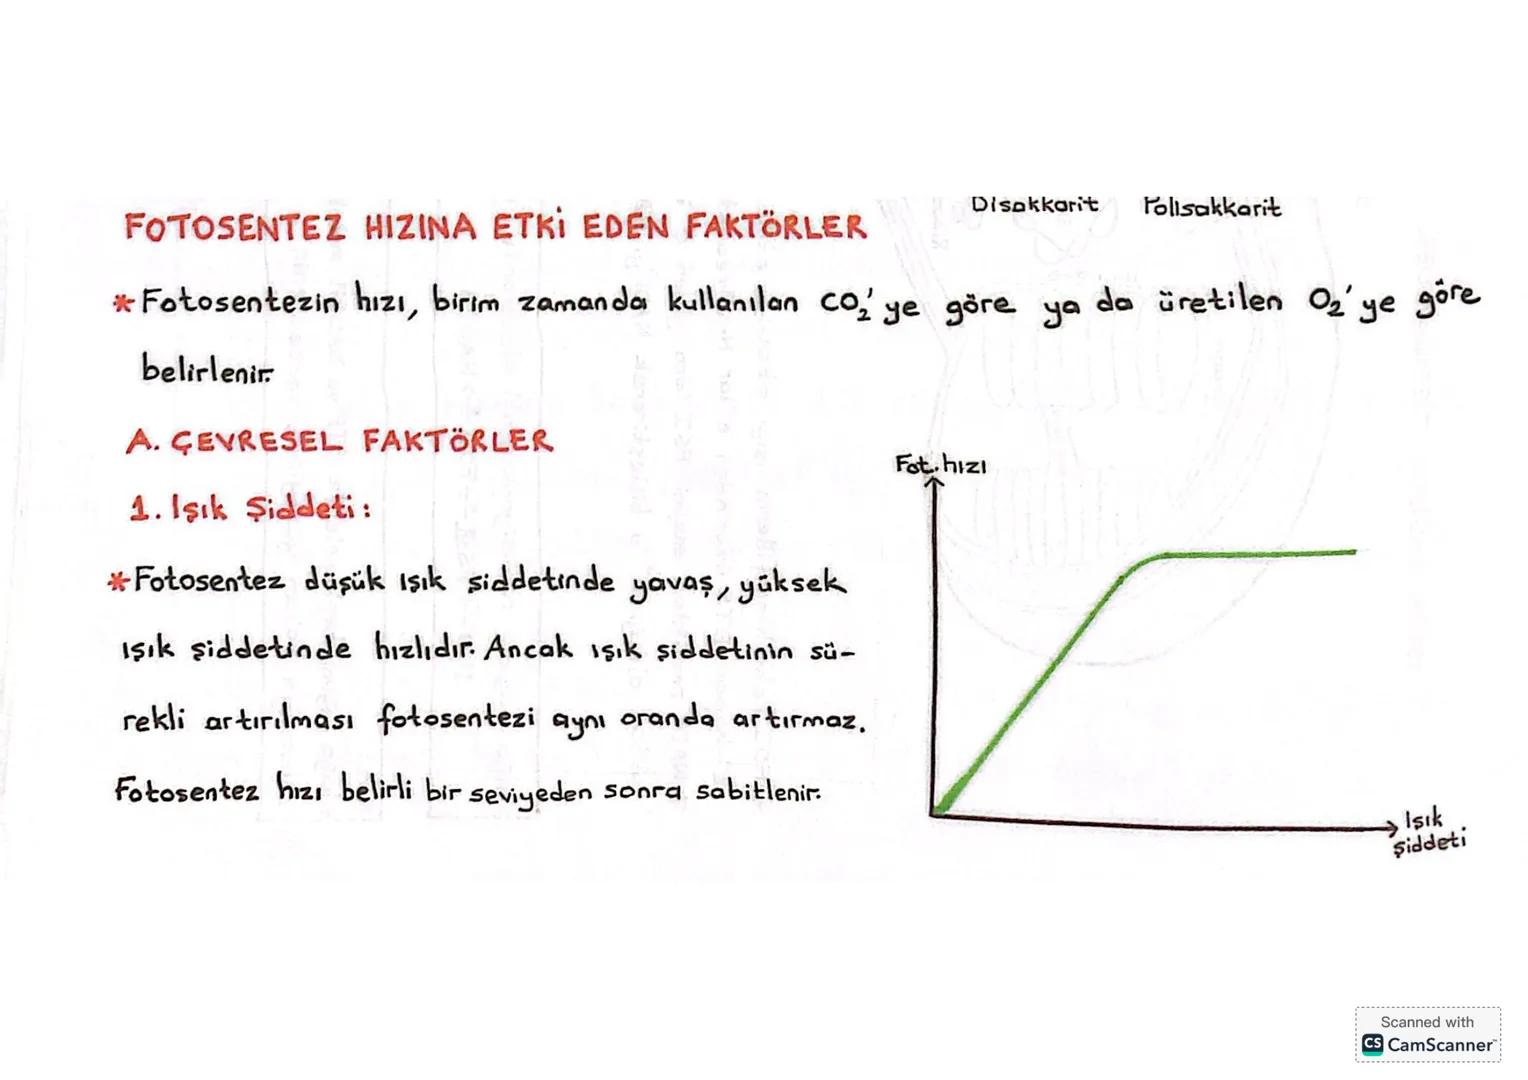 Disakkarit Polisakkarit
FOTOSENTEZ HIZINA ETKİ EDEN FAKTÖRLER
* Fotosentezin hızı, birim zamanda kullanılan CO₂'ye göre ya da üretilen O₂'ye göre
belirlenir.
A. ÇEVRESEL FAKTÖRLER
1. Işık Şiddeti:
* Fotosentez düşük ışık şiddetinde yavaş, yüksek
ışık şiddetinde hızlıdır. Ancak ışık şiddetinin sü-
rekli artırılması fotosentezi aynı oranda artırmaz.
Fotosentez hızı belirli bir seviyeden sonra sabitlenir.
Fot. hızı
Işık
şiddeti
Scanned with
CS CamScanner